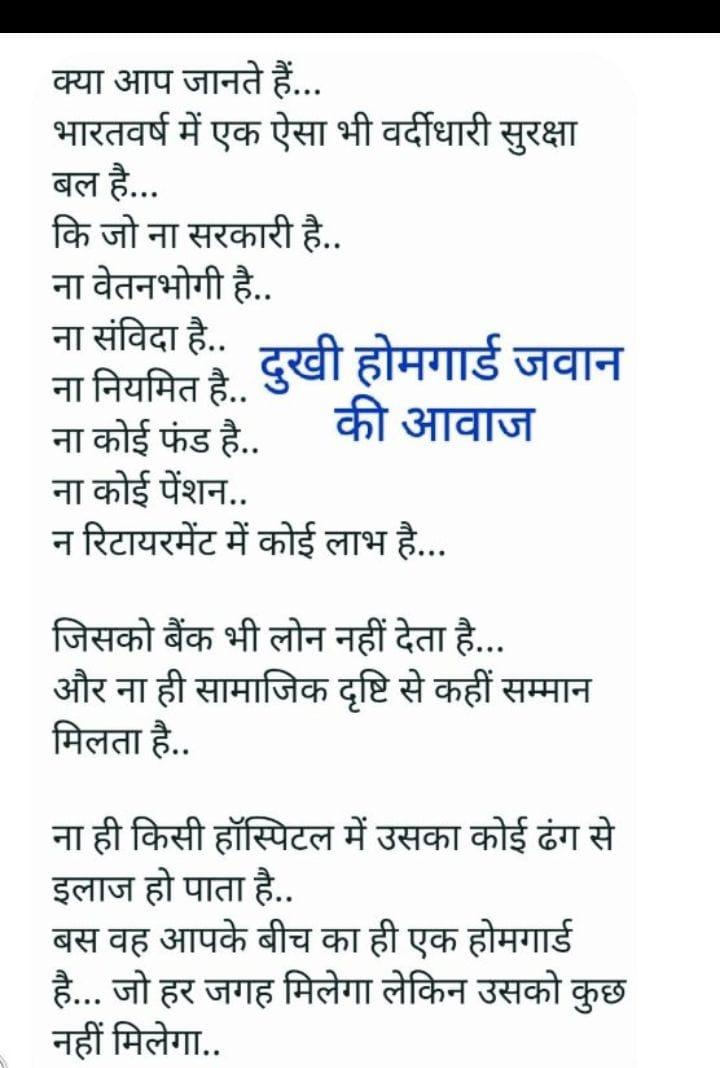 क्या आप जानते हैं...
भारतवर्ष में एक ऐसा भी वर्दीधारी सुरक्षा
बल है...
कि जो ना सरकारी है..
ना वेतनभोगी है..
ना संविदा है..
ना नियमित है..
ना कोई फंड है..
ना कोई पेंशन..
न रिटायरमेंट में कोई लाभ है...
दुखी होमगार्ड जवान
की आवाज
जिसको बैंक भी लोन नहीं देता है...
और ना ही सामाजिक दृष्टि से कहीं सम्मान
मिलता है..
ना ही किसी हॉस्पिटल में उसका कोई ढंग से
इलाज हो पाता है..
बस वह आपके बीच का ही एक होमगार्ड
है... जो हर जगह मिलेगा लेकिन उसको कुछ
नहीं मिलेगा..